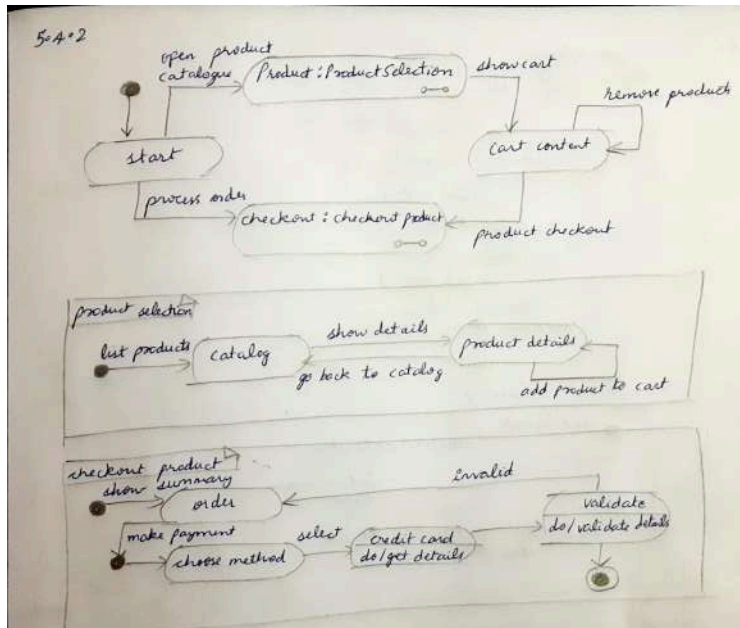 5.4.2
open product
catalogue
Product : Product Selection
show cart
remove products
start
cart content
process order
checkout : checkout product
product checkout
product selection
list products
catalog
show details
product details
go back to catalog
add product to cart
checkout product
show summary
order
invalid
validate
do/validate details
make payment
select
credit card
do/get details
choose method